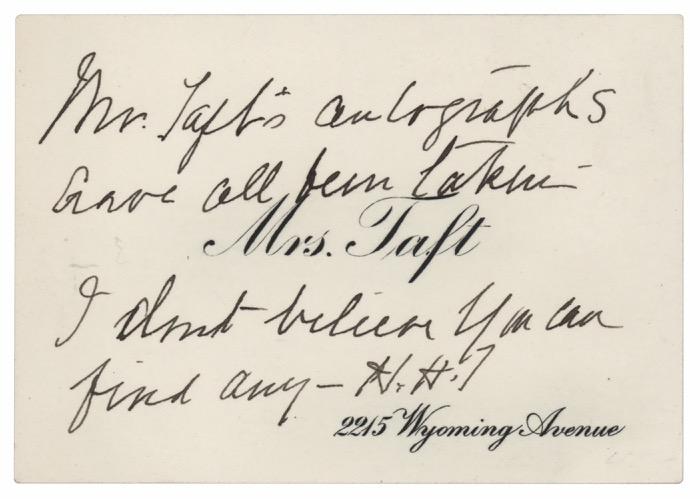 Mr. Taft's autographs
have all been taken—
Mrs. Taft
I don't believe you can
find any— H.H.T
2215 Wyoming Avenue